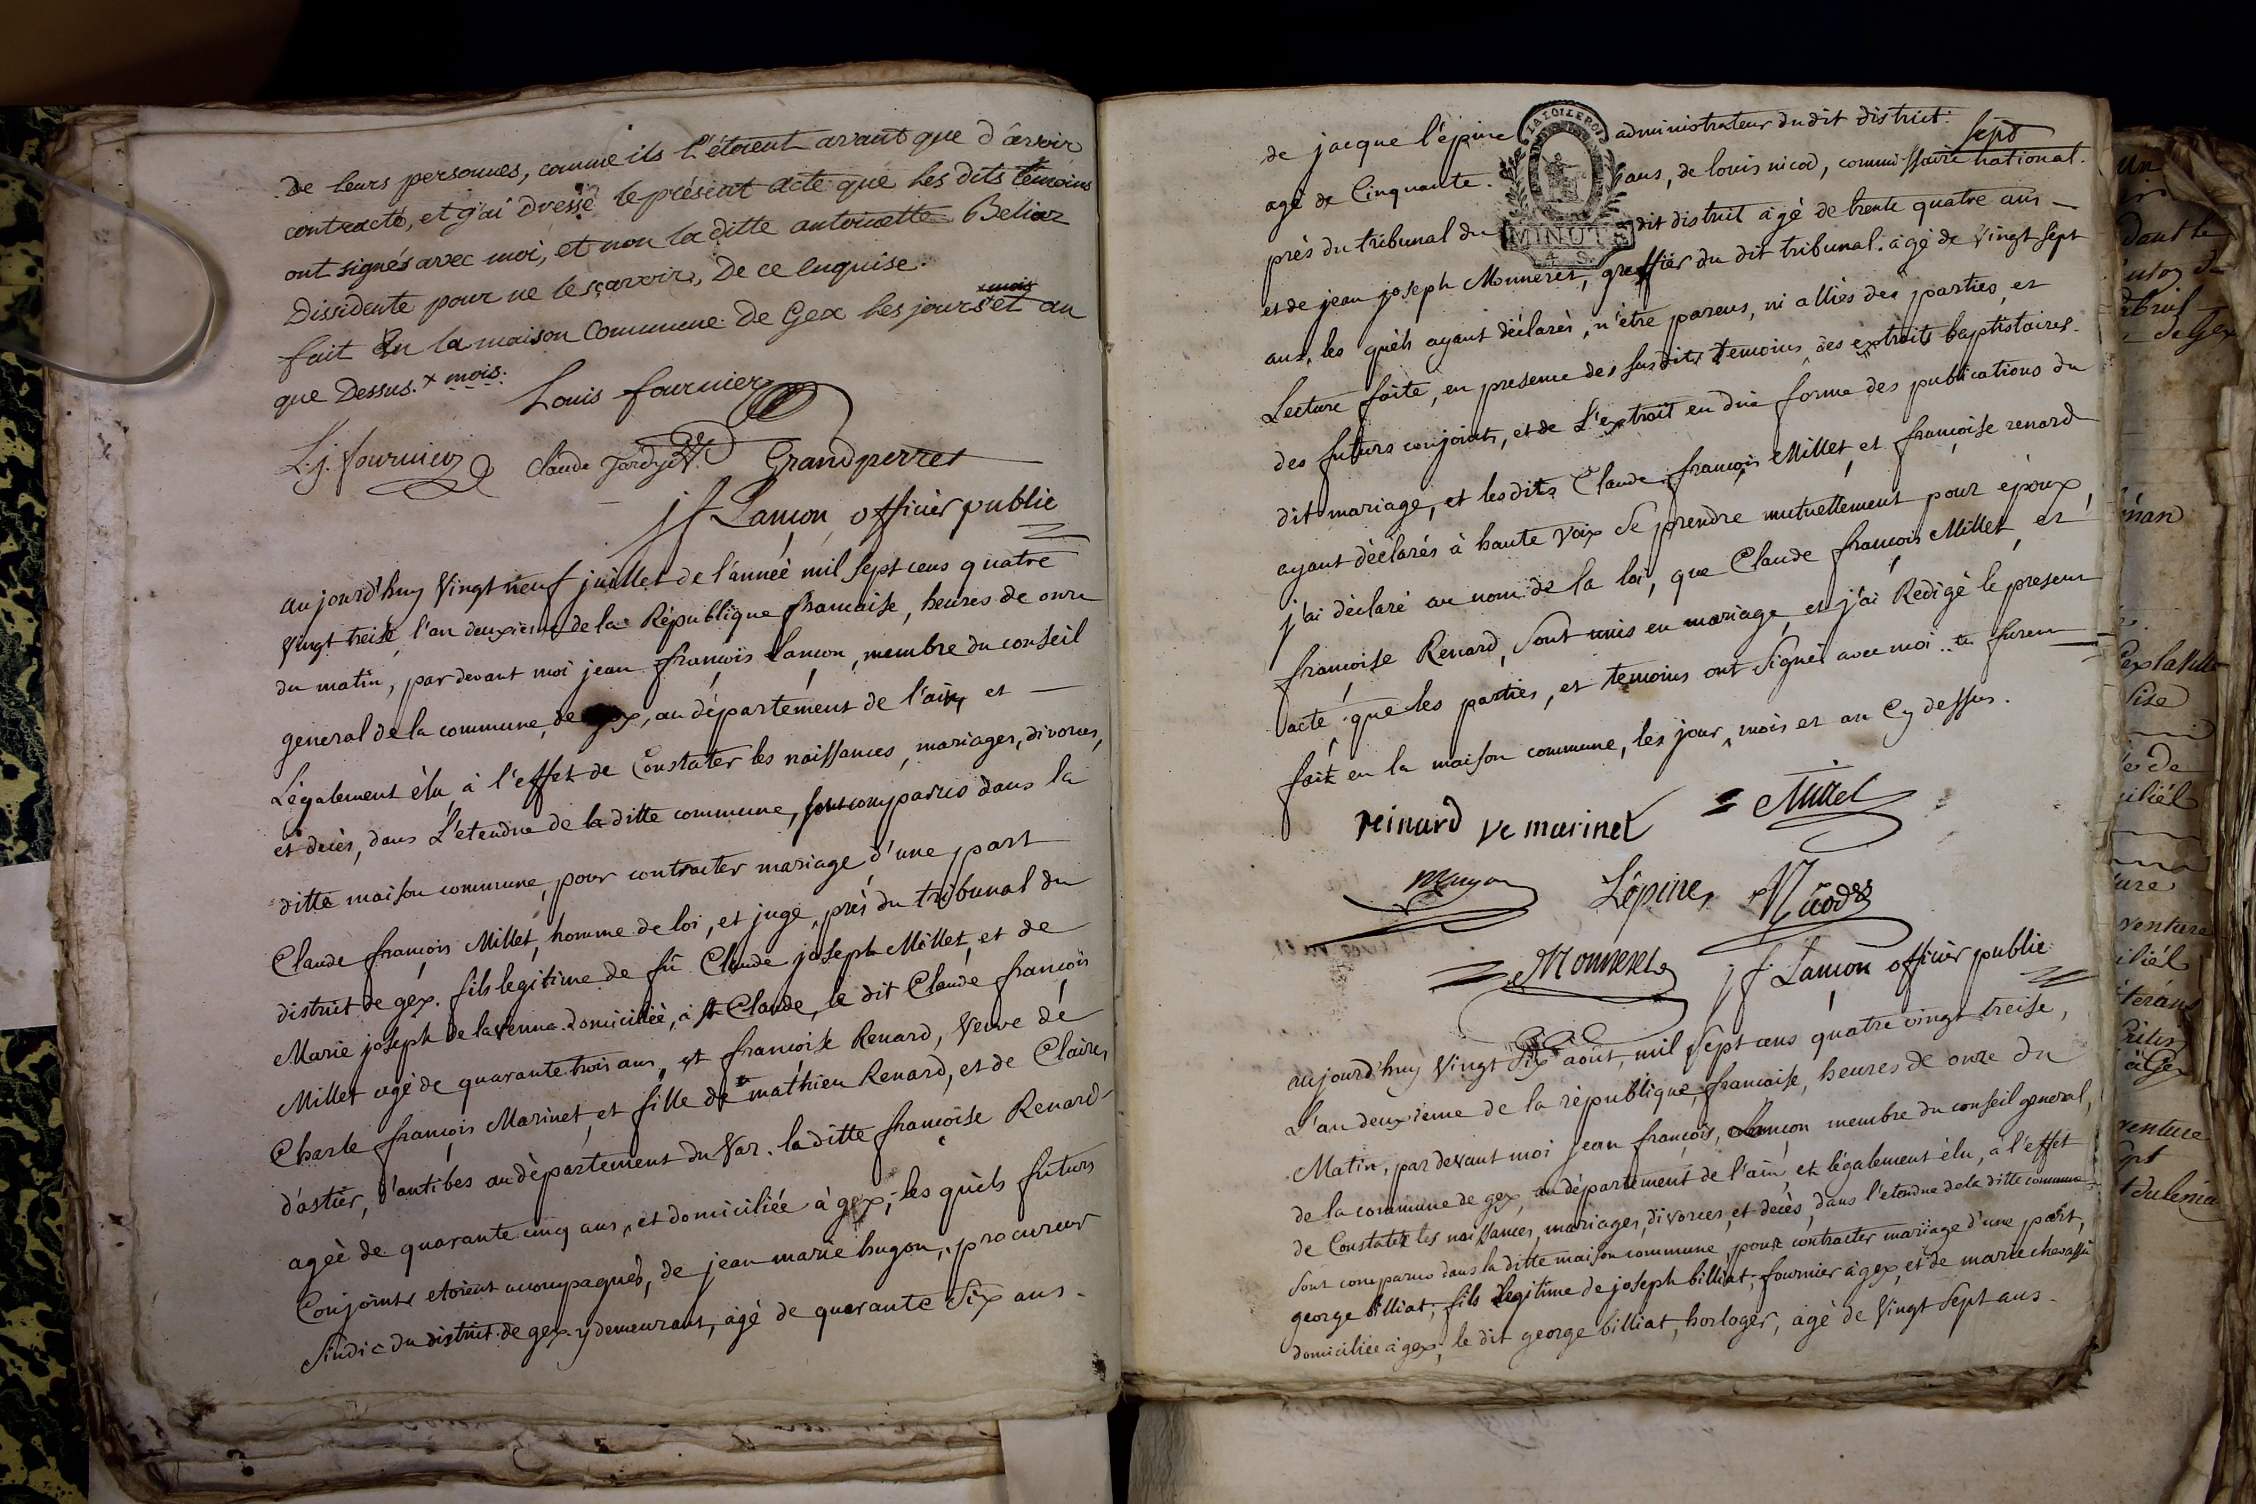 De leurs personnes, comme ils l'étoient avant que d'avoir
contracté, et j'ai dressé le présent acte que les dits temoins
ont signés avec moi, et non la ditte antoinette Beliaz
Dissidente pour ne le sçavoir, De ce enquise.
fait En la maison Commune De Gex les jours × mois et an
que Dessus. × mois.
Louis fournier
L. j. fournier Claude Grandperret
jf Lançon officier public
aujourd'huy Vingt neuf juillet de l'année mil sept cens quatre
Vingt treise, l'an deuxieme de la République francaise, heures de onze
du matin, par devant moi jean françois Lançon, membre du conseil
general de la commune, de gex, au département de l'ain, et —
Légalement élu à l'effet de Constater les naissances, mariages, divorces,
et decès, dans L'etendue de la ditte commune, sont comparus dans la
ditte maison commune, pour contracter mariage d'une part
Claude françois Millet, homme de loi, et juge, près du tribunal du
district de gex. fils legitime de fû Claude joseph Millet, et de
Marie joseph de lavenna domiciliée, à st Claude, le dit Claude françois
Millet agé de quarante trois ans, et francoise Renard, Veuve de
Charle françois Marinet, et fille de mathieu Renard, et de Claire
d'astier, d'antibes au département du Var. la ditte francoise Renard
ageé de quarante cinq ans, et domiciliée à gex; les quels futurs
Conjoints etoient accompagnés, de jean marie hugon, procureur
sindic du district de gex. y demeurant, agé de quarante six ans.
de jacque l'épine administrateur du dit district.
agé de Cinquante sept ans, de louis nicod, commissaire national.
près du tribunal du dit district âgé de trente quatre ans —
MINUTE
4 S.
et de jean joseph Monneret, greffier du dit tribunal. âgé de Vingt sept
ans. les quels ayant déclarés, n'être parens, ni alliés des parties, et
Lecture faite, en presence des susdits temoins, des extraits baptistaires
des futurs conjoints, et de L'extrait en due forme des publications du
dit mariage, et lesdits Claude françois Millet, et françoise renard
ayant déclarés à haute voix se prendre mutuellement pour epoux,
j'ai déclaré au nom de la loi, que Claude françois Millet, et
françoise Renard, sont unis en mariage, et j'ai Redigé le present
acte, que les parties, et temoins ont signés avec moi
fait en la maison commune, les jour, mois et an Cy dessus.
reinard ve marinet Millet
Lépine, Nicod
Monneret jf Lançon officier public
aujourd'huy Vingt Six aout, mil sept cens quatre vingt treise,
L'an deuxieme de la république francaise, heures de onze du
Matin, par devant moi jean françois, Lançon membre du conseil general,
de la commune de gex, au département de l'ain, et légalement élu, a l'effet
de Constater les naissances, mariages, divorces, et decès, dans l'etendue dela ditte commune
sont comparus dans la ditte maison commune, pour contracter mariage d'une part,
george billiat, fils legitime de joseph billiat, fournier à gex, et de marie
domiciliée à gex, le dit george billiat, horloger, agé de Vingt sept ans.